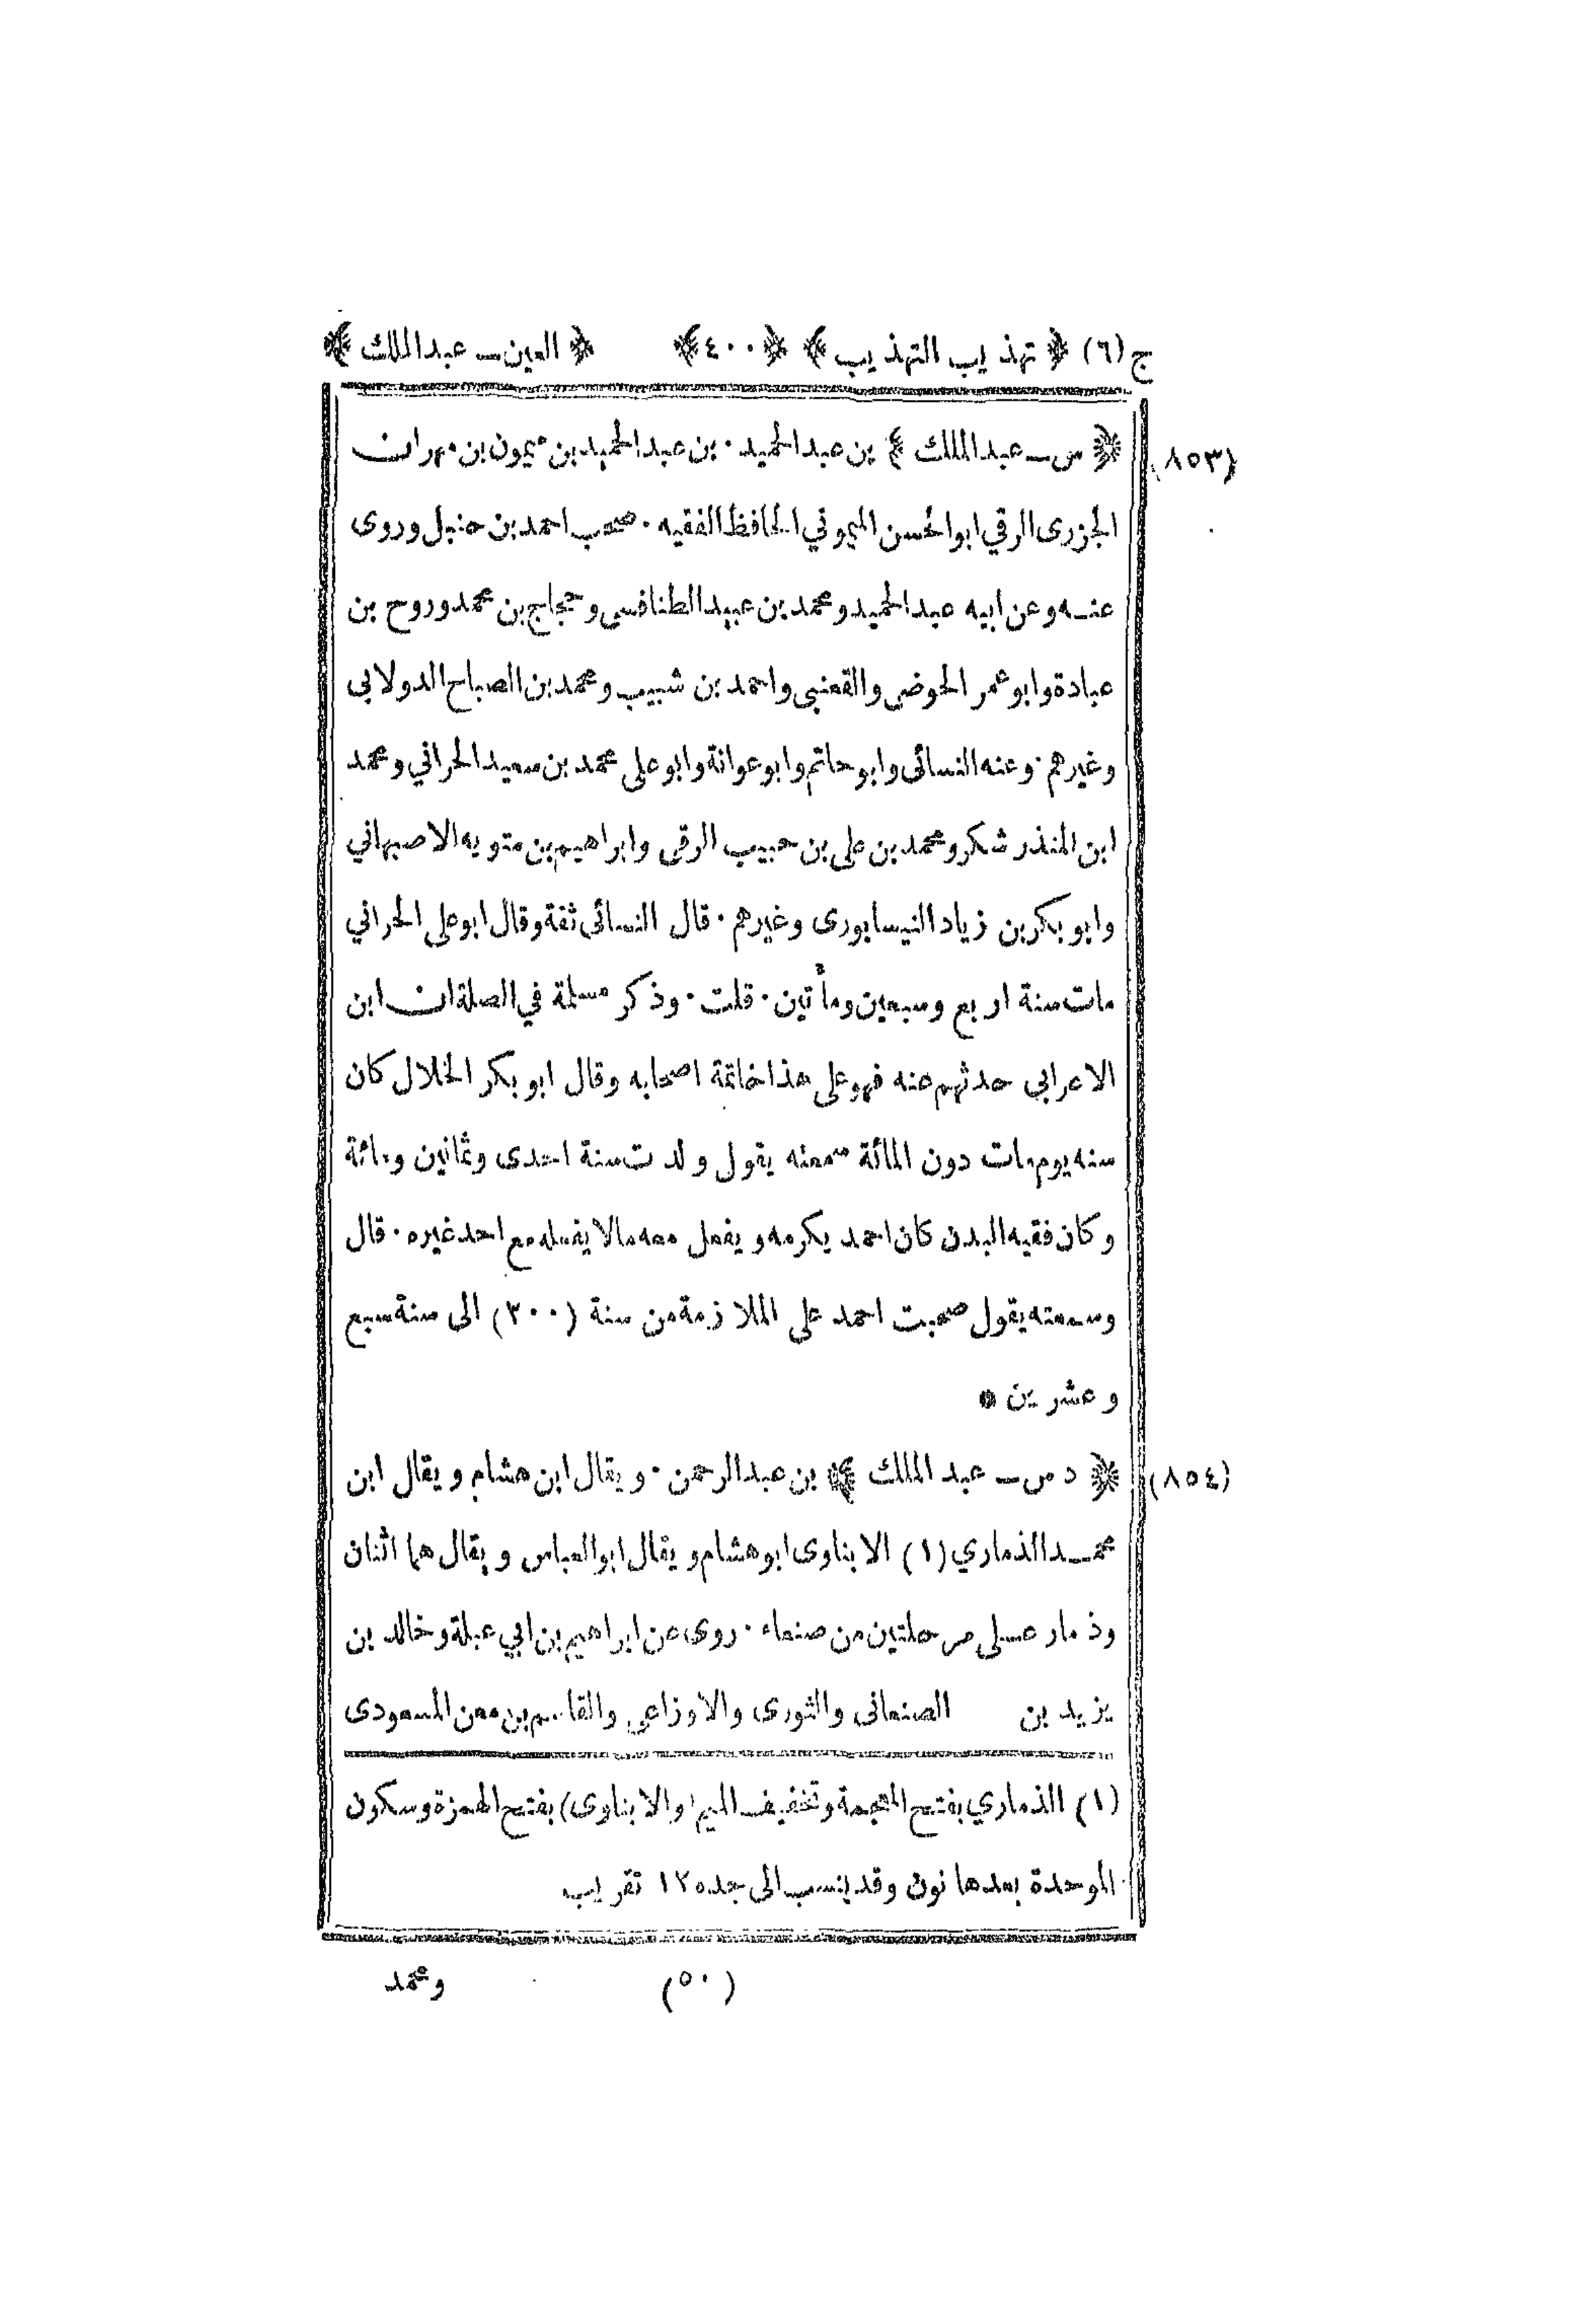 ج (٦) ﴿ تهذيب التهذيب ﴾ ﴿٤٠٠﴾ ﴿ العين ـ عبدالملك ﴾
(٨٥٣) ﴿ س ـ عبدالملك ﴾ بن عبدالحميد . بن عبدالحميد بن ميمون بن مهران
الجزرى الرقي ابوالحسن الميموني الحافظ الفقيه . صحب احمد بن حنبل وروى
عنه وعن ابيه عبدالحميد ومحمد بن عبيد الطنافسي وحجاج بن محمد وروح بن
عبادة وابو عمر الحوضي والقعنبى واحمد بن شبيب ومحمد بن الصباح الدولابى
وغيرهم . وعنه النسائى وابو حاتم وابو عوانة وابو على محمد بن سعيد الحراني ومحمد
ابن المنذر شكر ومحمد بن على بن حبيب الرقى وابراهيم بن متويه الاصبهاني
وابو بكر بن زياد النيسابورى وغيرهم . قال النسائى ثقة وقال ابو على الحراني
مات سنة اربع وسبعين ومأتين . قلت . وذكر مسلمة في الصلة ان ابن
الاعرابى حدثهم عنه فهو على هذا خاتمة اصحابه وقال ابو بكر الخلال كان
سنه يوم مات دون المائة سمعته يقول ولدت سنة احدى وثمانين ومائة
وكان فقيه البدن كان احمد يكرمه ويفعل معه مالا يفعله مع احد غيره . قال
وسمعته يقول صحبت احمد على الملازمة من سنة (٢٠٠) الى سنة سبع
وعشرين *
(٨٥٤) ﴿ د س ـ عبد الملك ﴾ بن عبدالرحمن . ويقال ابن هشام ويقال ابن
محمد الذماري (١) الابناوى ابو هشام ويقال ابو العباس ويقال هما اثنان
وذمار على مرحلتين من صنعاء . روى عن ابراهيم بن ابي عبلة وخالد بن
يزيد بن الصنعانى والثورى والاوزاعي والقاسم بن معن المسعودى
(١) الذماري بفتح المعجمة وتخفيف الميم (والابناوى) بفتح الهمزة وسكون
الموحدة بعدها نون وقد ينسب الى جده ١٢ تقريب
(٥٠) ومحمد